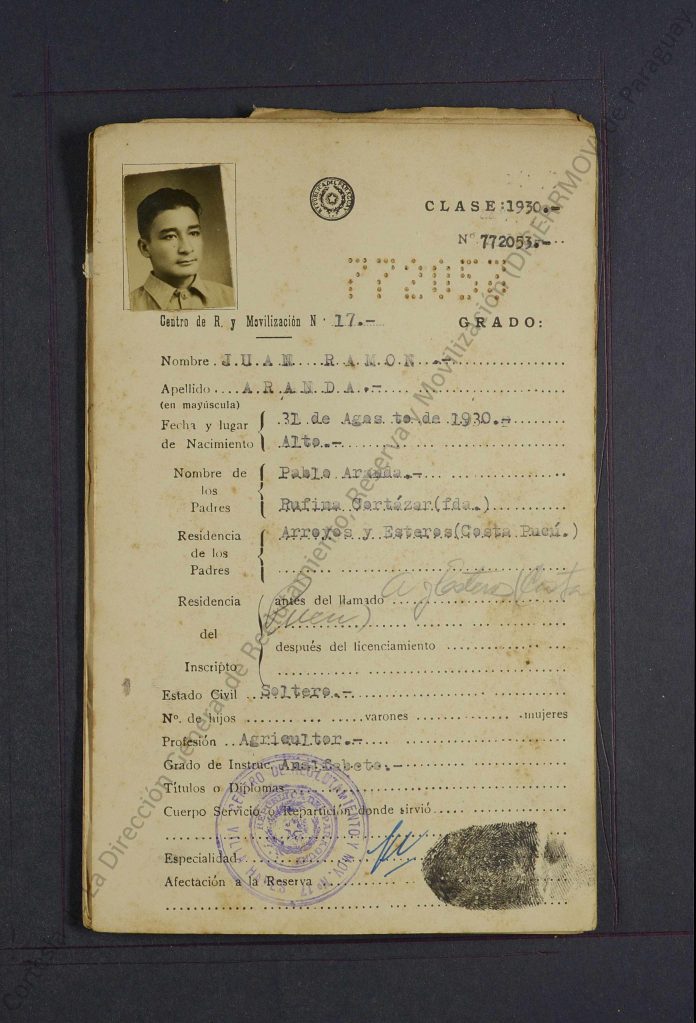 REPUBLICA DEL PARAGUAY
CLASE: 1930.-
Nº 772053.-
772053
Centro de R. y Movilización N· 17.-
GRADO:
Nombre JUAN RAMON .-
Apellido ARANDA.-
(en mayúscula)
Fecha y lugar de Nacimiento { 31 de Agosto de 1930.-
Alto.-
Nombre de los Padres { Pablo Aranda.-
Rufina Cortázar(fda.)
Residencia de los Padres { Arroyos y Esteros(Costa Pucú.)
Residencia del Inscripto { antes del llamado A y Esteros (Costa
Pucu)
después del licenciamiento
Estado Civil Soltero.-
Nº. de hijos varones mujeres
Profesión Agricultor.-
Grado de Instruc. Analfabeto.-
Títulos o Diplomas
Cuerpo Servicio o Repartición donde sirvió
Especialidad
Afectación a la Reserva
CENTRO DE RECLUTAMIENTO Y MOV. Nº 17
REPUBLICA DEL PARAGUAY
La Dirección General de Reclutamiento, Reserva y Movilización (DISERMOV) de Paraguay